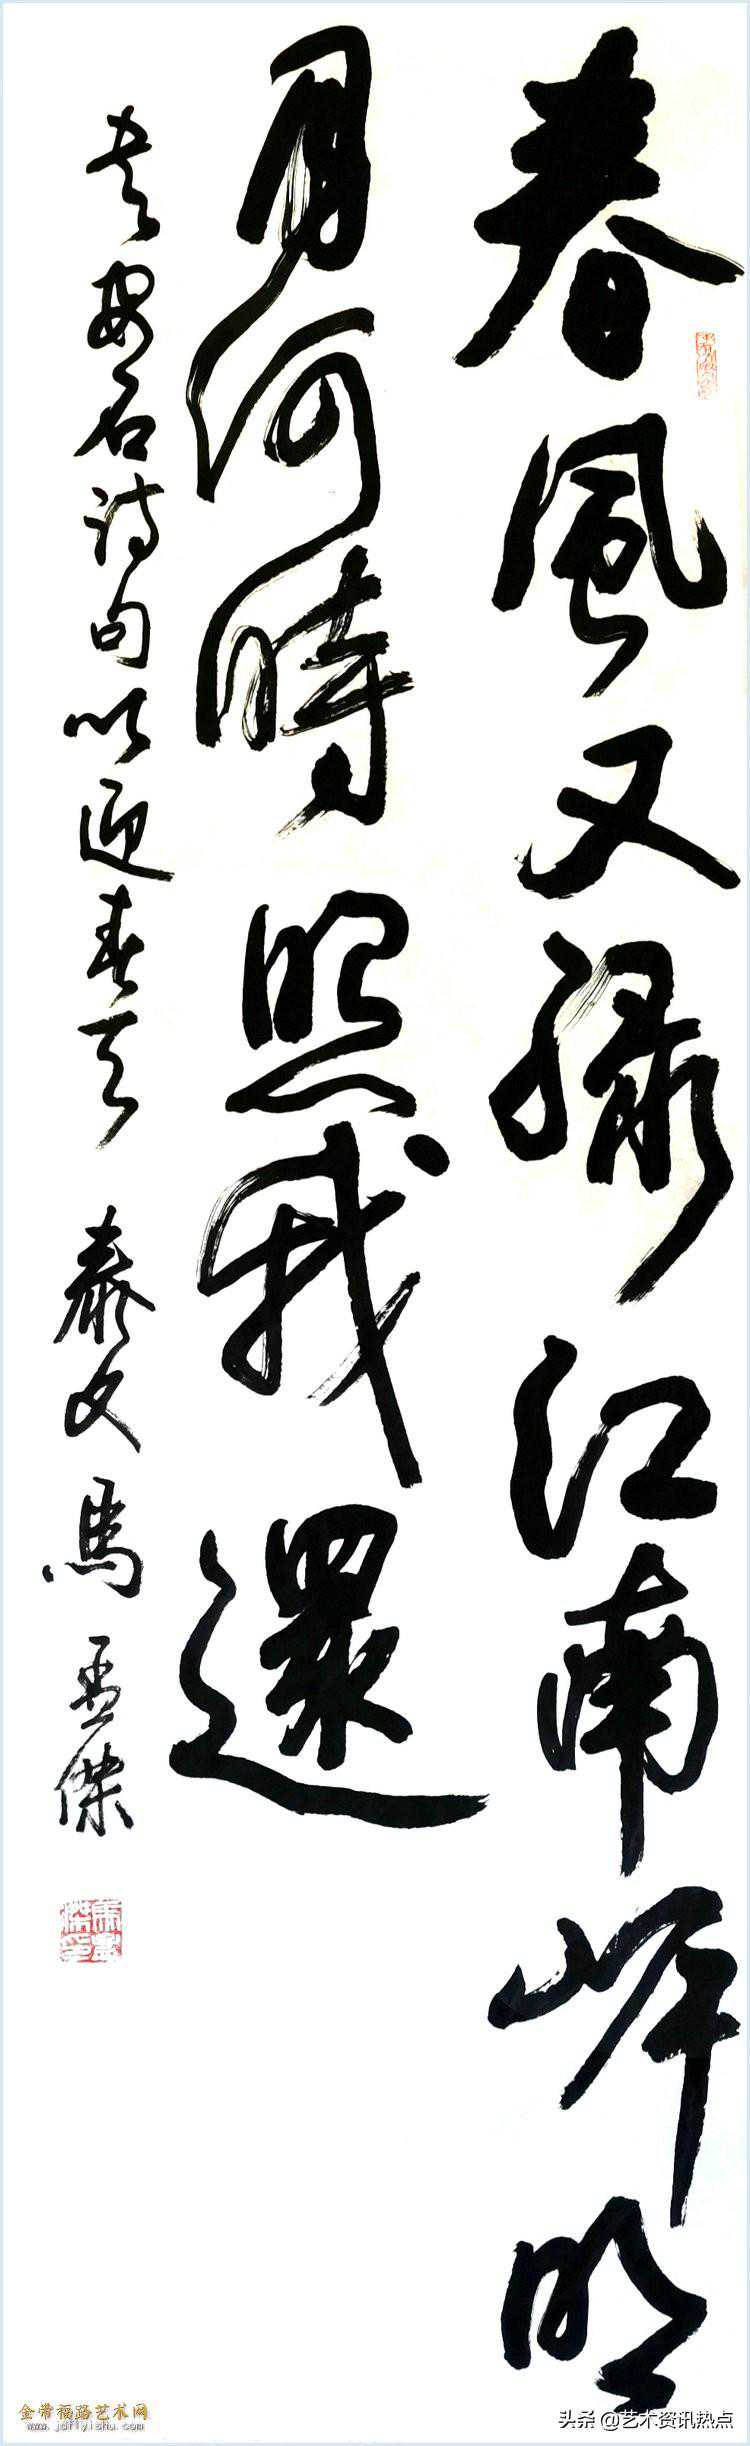 春風又綠江南岸明
月何時照我還
安石诗句以迎春天 泰文 馬孟傑
金带福路艺术网
www.jdflyishu.com
头条 @艺术资讯热点